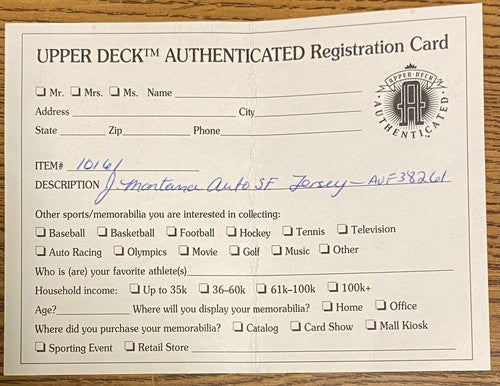 UPPER DECK™ AUTHENTICATED Registration Card
UPPER DECK
AUTHENTICATED
☐ Mr. ☐ Mrs. ☐ Ms. Name
Address City
State Zip Phone
ITEM# 10161
DESCRIPTION J. Montana Auto SF Jersey - AUF38261
Other sports/memorabilia you are interested in collecting:
☐ Baseball ☐ Basketball ☐ Football ☐ Hockey ☐ Tennis ☐ Television
☐ Auto Racing ☐ Olympics ☐ Movie ☐ Golf ☐ Music ☐ Other
Who is (are) your favorite athlete(s)
Household income: ☐ Up to 35k ☐ 36-60k ☐ 61k-100k ☐ 100k+
Age? Where will you display your memorabilia? ☐ Home ☐ Office
Where did you purchase your memorabilia? ☐ Catalog ☐ Card Show ☐ Mall Kiosk
☐ Sporting Event ☐ Retail Store